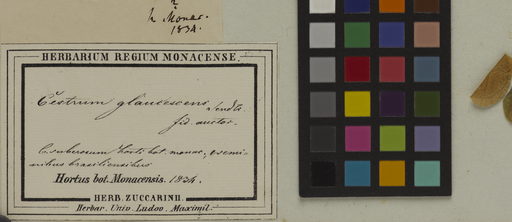 h. Monac.
1834.
HERBARIUM REGIUM MONACENSE.
Cestrum glaucescens Sendtn.
fid. auctor.
C. suberosum horti bot. monac. e semi-
nibus brasiliensibus
Hortus bot. Monacensis. 1834.
HERB. ZUCCARINII.
Herbar. Univ. Ludov. Maximil.